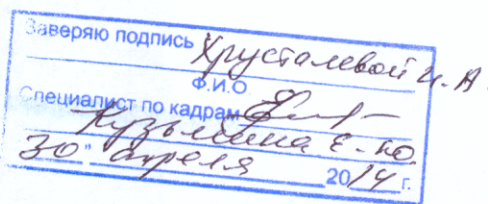 Заверяю подпись Хрусталевой И.А.
Ф.И.О.
Специалист по кадрам
Кузьмина Е.Ю.
30 " апреля 2014 г.